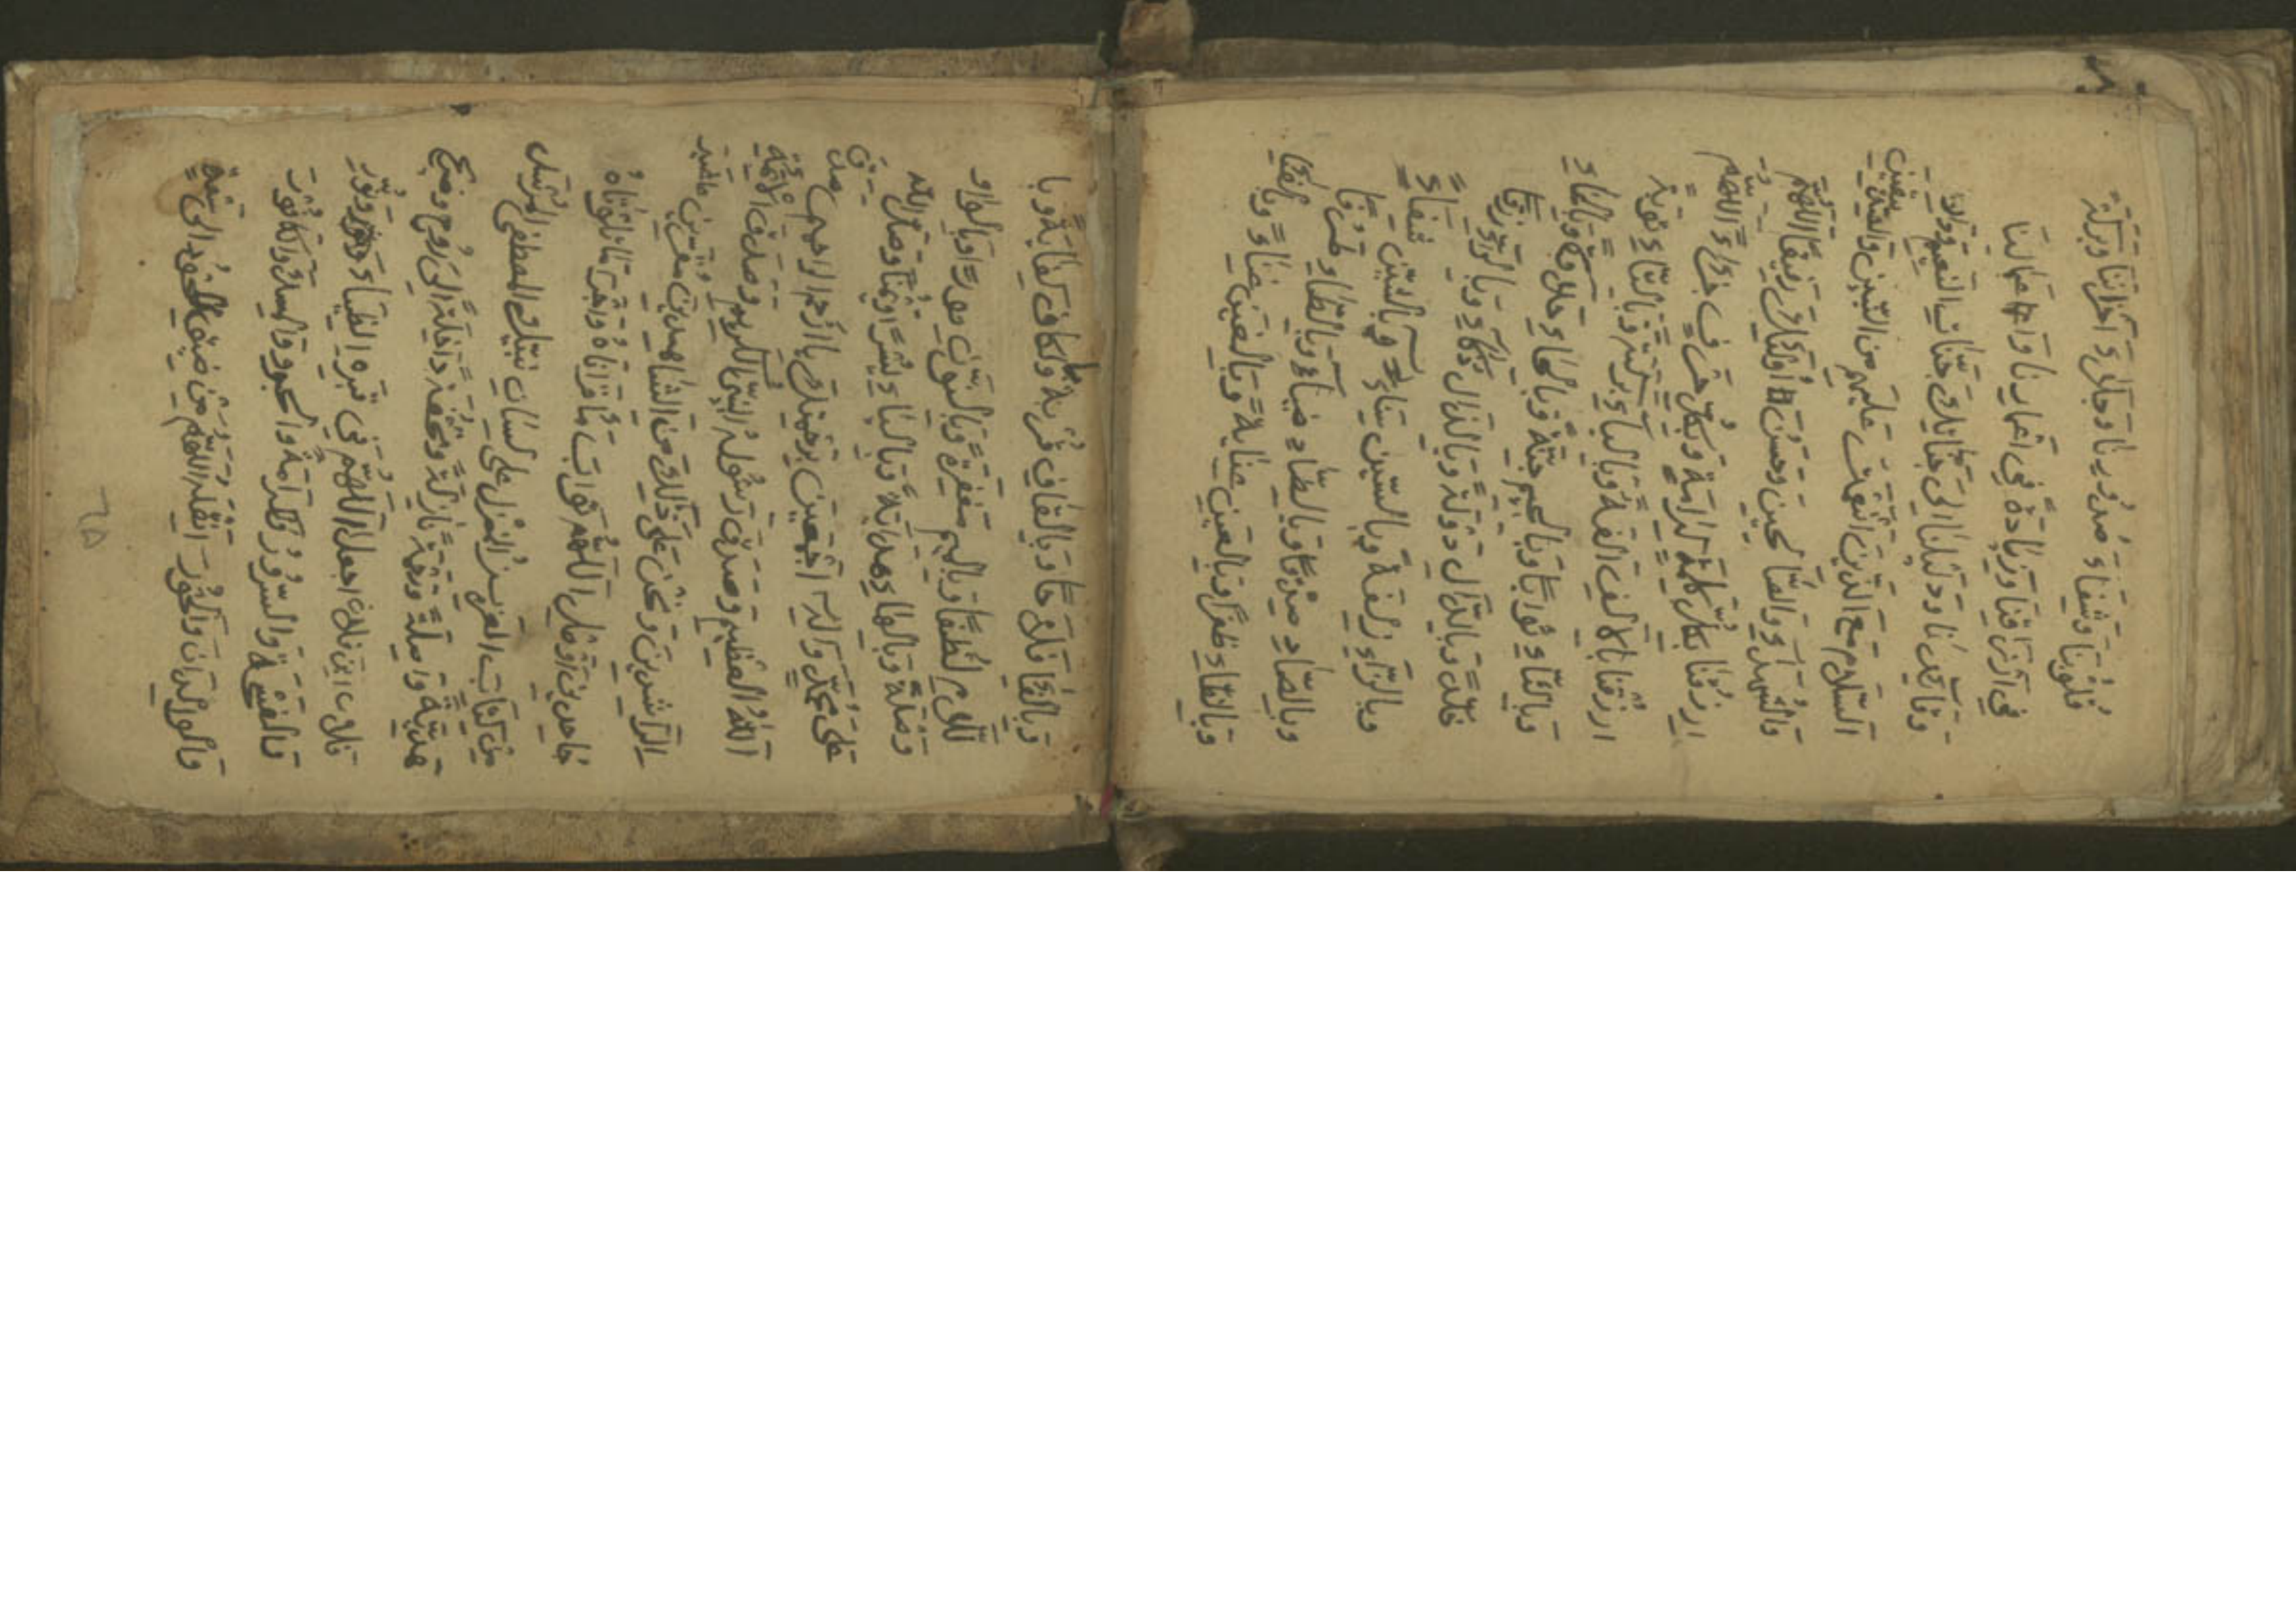 قلوبنا وشفاء صدورنا وجلاء احزاننا وبركة
في ارزاقنا وزيادة في اعمارنا واعمالنا
وقائدنا ودليلنا الى جنانك جنات النعيم ودارك
السلام مع الذين انعمت عليهم من النبيين والصديقين
والشهداء والصالحين وحسن اولئك رفيقا اللهم
ارزقنا بكل كلمة كرامة وبكل حرف جزاء اللهم
ارزقنا بالالف الفة وبالباء بركة وبالتاء توبة
وبالثاء ثوابا وبالجيم جنة وبالحاء حلاوة وبالخاء
خلة وبالدال دولة وبالذال ذكاء وبالراء رزقا
وبالزاء زلفة وبالسين سناء وبالشين شفاء
وبالصاد صدقا وبالضاد ضياء وبالطاء
وبالظاء ظفرا وبالعين عناية وبالغين غناء وبالفاء
وبالقاف قربة وبالكاف كفاية وبا
للام لطفا وبالميم مغفرة وبالنون نورا وبالواو
وصلة وبالهاء هداية وبالياء يسرا ويمنا وصلى الله
على محمد وآله اجمعين برحمتك يا ارحم الراحمين صدق
الله العظيم وصدق رسوله النبي الكريم وصدق الائمة
الراشدين ونحن على ذلك من الشاهدين مقرين غير
جاحدين اوصل اللهم ثواب ما قرأناه واجر ما تلوناه
من كتاب العزيز المنزل على لسان نبيك المصطفى المرسل
هدية واصلة ورحمة نازلة وتحفة داخلة الى روح وضريح
فلان ابن فلان اجعل اللهم في قبره الضياء والنور
والفسحة والسرور والكرامة والحبور والمسك والكافور
والولدان والحور انقله اللهم من ضيق اللحود الى سعة